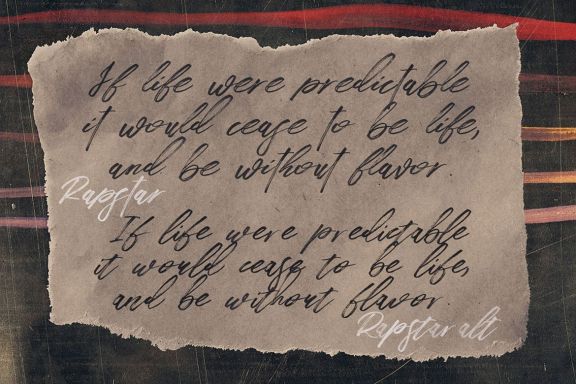 If life were predictable
it would cease to be life,
and be without flavor.
Rapstar
If life were predictable
it would cease to be life,
and be without flavor.
Rapstar alt